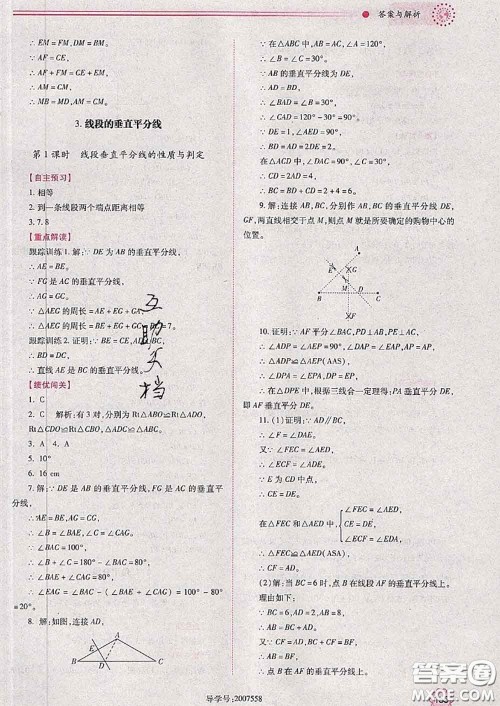 答案与解析
∴ EM=FM,DM=EM.
∵ AF=CE,
∴ AF+FM=CE+EM.
∴ AM=CM.
3. 线段的垂直平分线
第1课时 线段垂直平分线的性质与判定
【自主预习】
1. 相等
2. 到一条线段两个端点距离相等
3. 7,8
【重点解读】
跟踪训练1. 解:∵ DE 为 AB 的垂直平分线,
∴ AE=BE.
∵ FG 是 AC 的垂直平分线,
∴ AG=GC.
∴ △AEG 的周长=AE+EG+GA
跟踪训练2. 证明:∵ BE=CE,
∴ BD=DC.
∴ 直线 AE 是 BC 的垂直平分线.
【缓优闯关】
1. C
2. C 解析:有3对,分别为 Rt△ABO≌Rt△ADO,
Rt△CBO≌Rt△CDO,Rt△ABC≌Rt△ADC.
3. A 4. A
5. 10°
6. 16 cm
7. 解:∵ DE 是 AB 的垂直平分线,FG 是 AC 的垂直平
分线,
∴ AE=BE,AG=CG.
∴ ∠B=∠BAE,∠C=∠CAG.
∵ ∠BAC=100°,
∴ ∠B+∠C=180°-∠BAC=80°.
∴ ∠BAE+∠CAG=80°.
∴ ∠EAG=∠BAC-(∠BAE+∠CAG)=100°-80°
=20°.
8. 解:如图,连接 AD,
A
E
B D C
∵ 在△ABC 中,AB=AC,∠BAC=120°,
∴ ∠B=∠C=30°.
∵ AB 的垂直平分线为 DE,
∴ AD=BD.
∴ ∠BAD=∠B=30°.
∴ ∠CAD=120°-30°=90°.
∵ BD=AD=2DE=2,
在直角△ACD 中,∠C=30°,
∴ CD=2AD=4,
∴ BC=BD+CD=2+4=6.
9. 解:连接 AB,AC,分别作 AB,AC 的垂直平分线 DE,
GF,两直线相交于点 M,则点 M 就是所要确定的购物中心的
位置.
A
E G
M D
B F C
10. 证明:∵ AF 平分∠BAC,PD⊥AB,PE⊥AC,
∴ ∠DAP=∠EAP,∠ADP=∠AEP,AP=AP.
∴ △ADP≌△AEP(AAS),
∴ ∠DPA=∠EPA,DP=EP.
∴ 在△DPE 中,根据三线合一定理得:PA 垂直平分 DE,
即 AF 垂直平分 DE.
11. (1)证明:∵ AD∥BC,
∴ ∠F=∠DAE.
又∵ ∠FEC=∠AED,
∴ ∠ECF=∠ADE.
∵ E 为 CD 中点,
∴ CE=DE,
在△FEC 与△AED 中,
∠FEC=∠AED,
CE=DE,
∠ECF=∠ADE,
∴ △FEC≌△AED(ASA).
∴ CF=AD.
(2)解:当 BC=6 时,点 B 在线段 AF 的垂直平分线上.
理由如下:
∵ BC=6,AD=2,AB=8,
∴ AB=BC+AD.
又∵ CF=AD,BC+CF=BF,
∴ AB=BF.
∴ 点 B 在 AF 的垂直平分线上.
互
助
文
档
导学号:2007558
答案圈